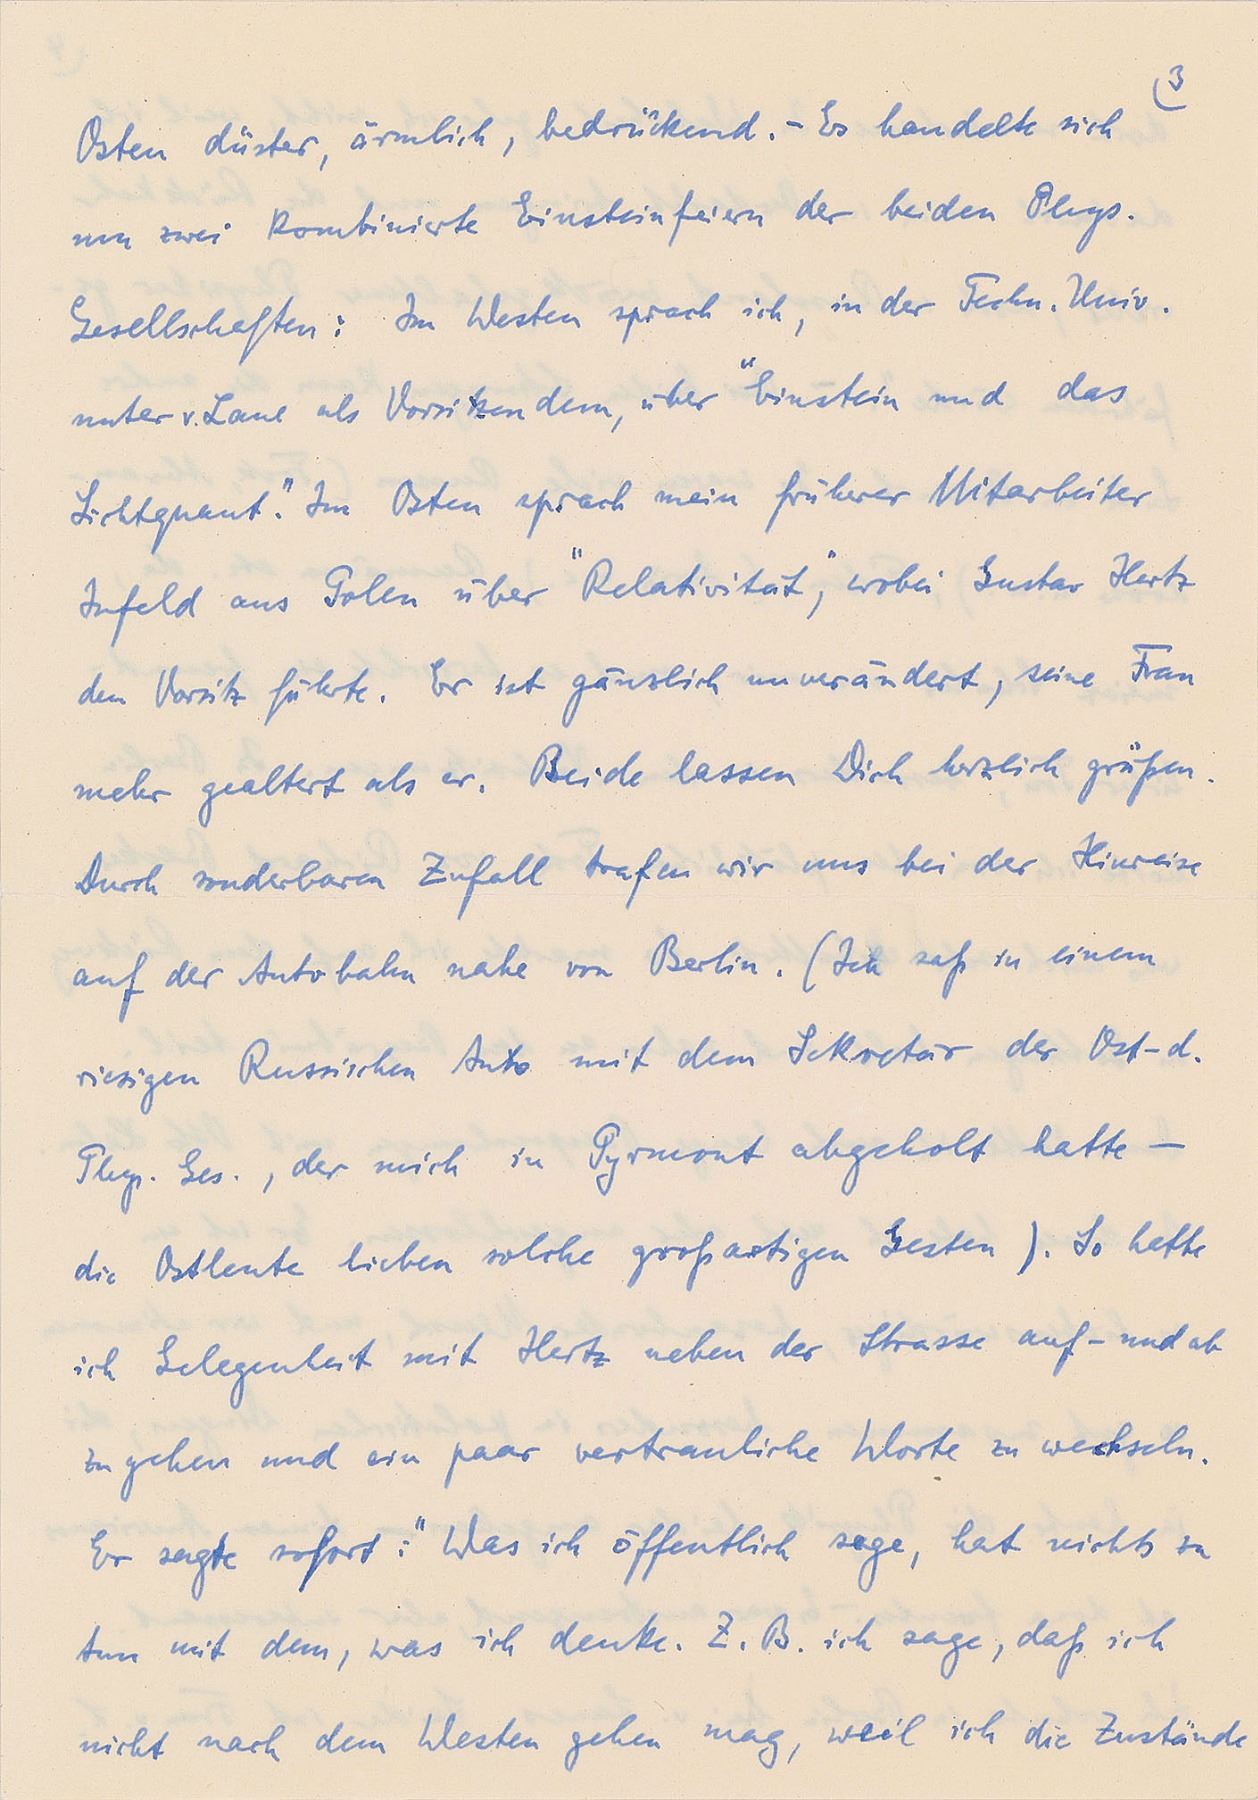 3
Osten düster, ärmlich, bedrückend. – Es handelte sich
um zwei kombinierte Einsteinfeiern der beiden Phys.
Gesellschaften: Im Westen sprach ich, in der Techn. Univ.
unter v. Laue als Vorsitzendem, über "Einstein und das
Lichtquant." Im Osten sprach mein früherer Mitarbeiter
Infeld aus Polen über "Relativität", wobei Gustav Hertz
den Vorsitz führte. Er ist gänzlich unverändert, seine Frau
mehr gealtert als er. Beide lassen Dich herzlich grüßen.
Durch sonderbaren Zufall trafen wir uns bei der Hinreise
auf der Autobahn nahe von Berlin. (Ich saß in einem
riesigen Russischen Auto mit dem Sekretär der Ost-d.
Phys. Ges., der mich in Pyrmont abgeholt hatte –
die Ostleute lieben solche großartigen Gesten). So hatte
ich Gelegenheit mit Hertz neben der Strasse auf- und ab
zu gehen und ein paar vertrauliche Worte zu wechseln.
Er sagte sofort: "Was ich öffentlich sage, hat nichts zu
tun mit dem, was ich denke. Z. B. ich sage, daß ich
nicht nach dem Westen gehen mag, weil ich die Zustände